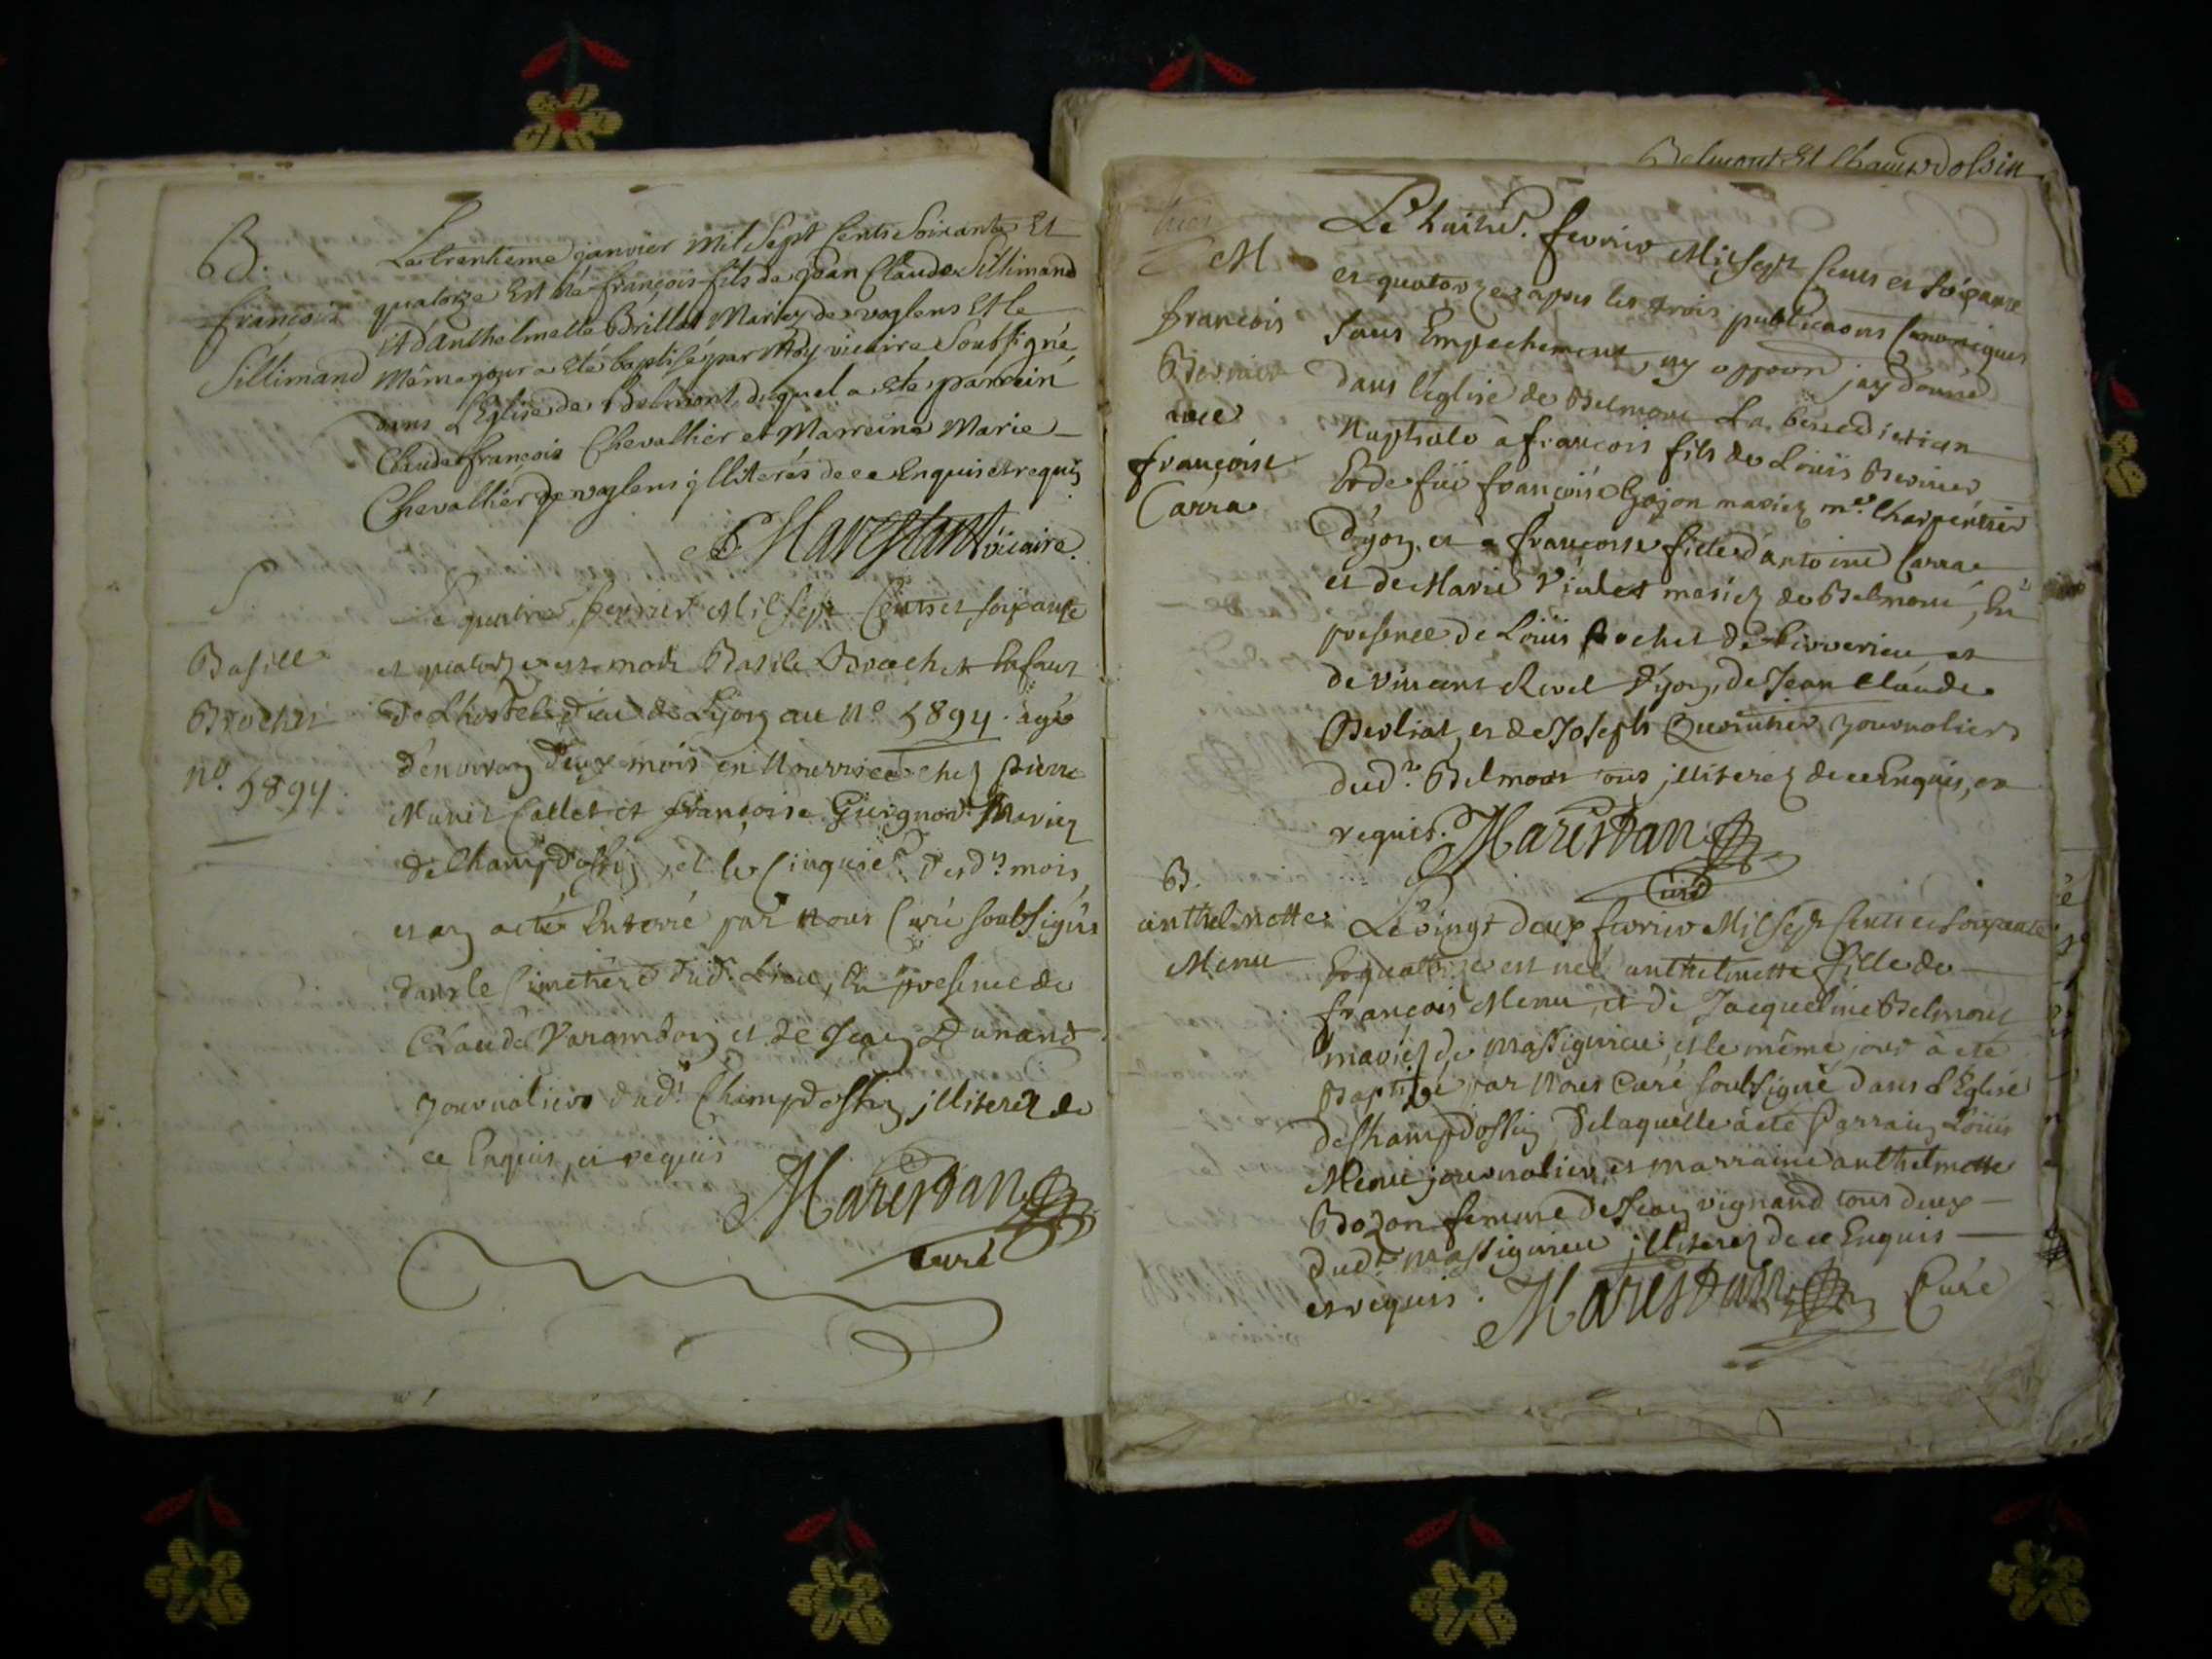 B.
françois
Sillimand
Le trentieme janvier mil sept cents soixante Et
quatorze Est né françois fils de jean Claude Sillimand
et d'anthelmette Brillat Mariez de voglens Et le
même jour a eté baptisé par Moy vicaire Soubsigné
dans L'Eglise de Belmont, duquel a ete parrein
Claude françois Chevallier et Marreine Marie
Chevallier de voglens illiterés de ce Enquis et requis
Marestant vicaire.
S
Basille
Brochet
n.º 5894
Le quatre fevrier Mil sept Cents et soixante
et quatorze est mort Basile Brochet Enfant
de L'hostel dieu de Lyon au nº 5894. agé
d'environ deux mois en Nourrice chez pierre
Collet et françoise Guignon Mariez
de Champdossin, et le Cinquie.e desd.ts mois
et an a eté Enterré par Nous Curé soubsigné
dans le Cimetiere dud.t Lieu, En presence de
Claude Varambon et de Jean Dunand
journaliers dud.t Champdossin illiterez de
ce Enquis, et requis
Marestan
curé
Belmont Et Champdossin
M
françois
Bernier
avec
françoise
Carra
Le huit.e fevrier Mil sept Cents et soixante
et quatorze et apres les trois publica̅ons Canoniques
sans Empechement, ny oppo̅on j'ay donné
dans l'eglise de Belmont La benediction
Nuptiale à françois fils de Loüis Bernier
Et de füe françoise Gojon mariez m.e Charpentier
d'yon, et à françoise fille d'antoine Carra
et de Marie Violet mariez de Belmont, En
presence de Loüis Rochet de Virverieu et
de vincent Revel d'yon, de Jean Claude
Berliat, et de Joseph journaliers
dud.t Belmont tous illiterez de ce Enquis, et
requis. Marestan
Curé
B.
anthelmette
Menu
Le vingt deux fevrier Mil sept Cents et soixante
Et quatorze est neé anthelmette fille de
françois Menu, et de Jacqueline Belmont
mariez de massignieu, et le même jour à eté
Baptizé par Nous Curé soubsigné dans L'Eglise
de Champdossin de laquelle à eté Parrain Loüis
Menu journalier, et marraine anthelmette
Bozon femme de Jean vignand tous deux
dud.t massignieu illiterez de ce Enquis
et requis. Marestan Curé